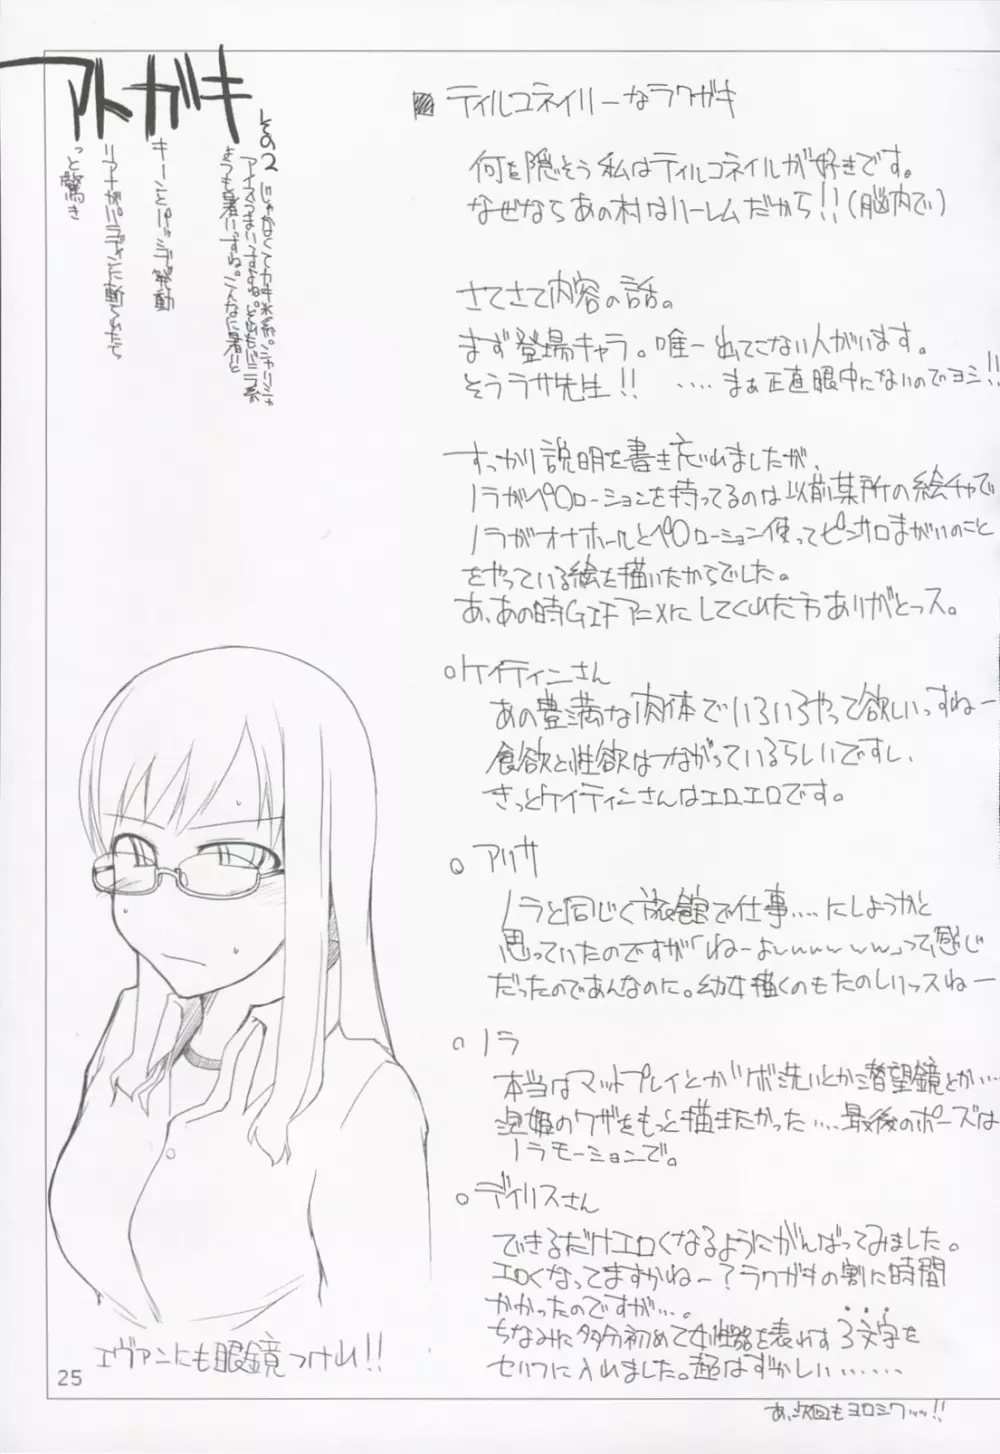 アトガキ
その2
じゃなくてガキ氷系。シャリシャ
アイスうまいですよね。それもバニラ系
ようも暑いっすね。こんなに暑いと
キーンとパッシブ発動
リアナがパラディンに断てたら
っと驚き
ティルコネイルーなラクガキ
何を隠そう私はティルコネイルが好きです。
なぜならあの村はハーレムだから!!(脳内で)
さてさて内容の話。
まず登場キャラ。唯一出てこない人がいます。
そうラサ先生!! ‥‥まぁ正直眼中にないのでヨシ!!
すっかり説明を書き忘れましたが、
ノラがペ〇ローションを持ってるのは以前某所の絵チャで
ノラがオナホールとペ〇ローション使ってピンサロまがいのこと
をやっている絵を描いたからでした。
あ、あの時GIFアニメにしてくれた方ありがとっス。
○ケイティンさん
あの豊満な肉体でいろいろやって欲しいっすねー
食欲と性欲はつながっているらしいですし、
きっとケイティンさんはエロエロです。
○アリサ
ノラと同じく旅館で仕事‥‥にしようかと
思っていたのですが「ねーよwwwww」って感じ
だったのであんなのに。幼女描くのもたのしいっスねー
○ノラ
本当はマットプレイとかツボ洗いとか潜望鏡とか‥‥
泡姫のワザをもっと描きたかった‥‥最後のポーズは
ノラモーションで。
○ディリスさん
できるだけエロくなるようにがんばってみました。
エロくなってますかねー?ラクガキの割に時間
かかったのですが‥‥。
ちなみに多分初めて女性器を表わす3文字を
セリフに入れました。超はずかしい‥‥‥
エヴァンにも眼鏡つけれ!!
25
あ、次回もヨロシクッッ!!